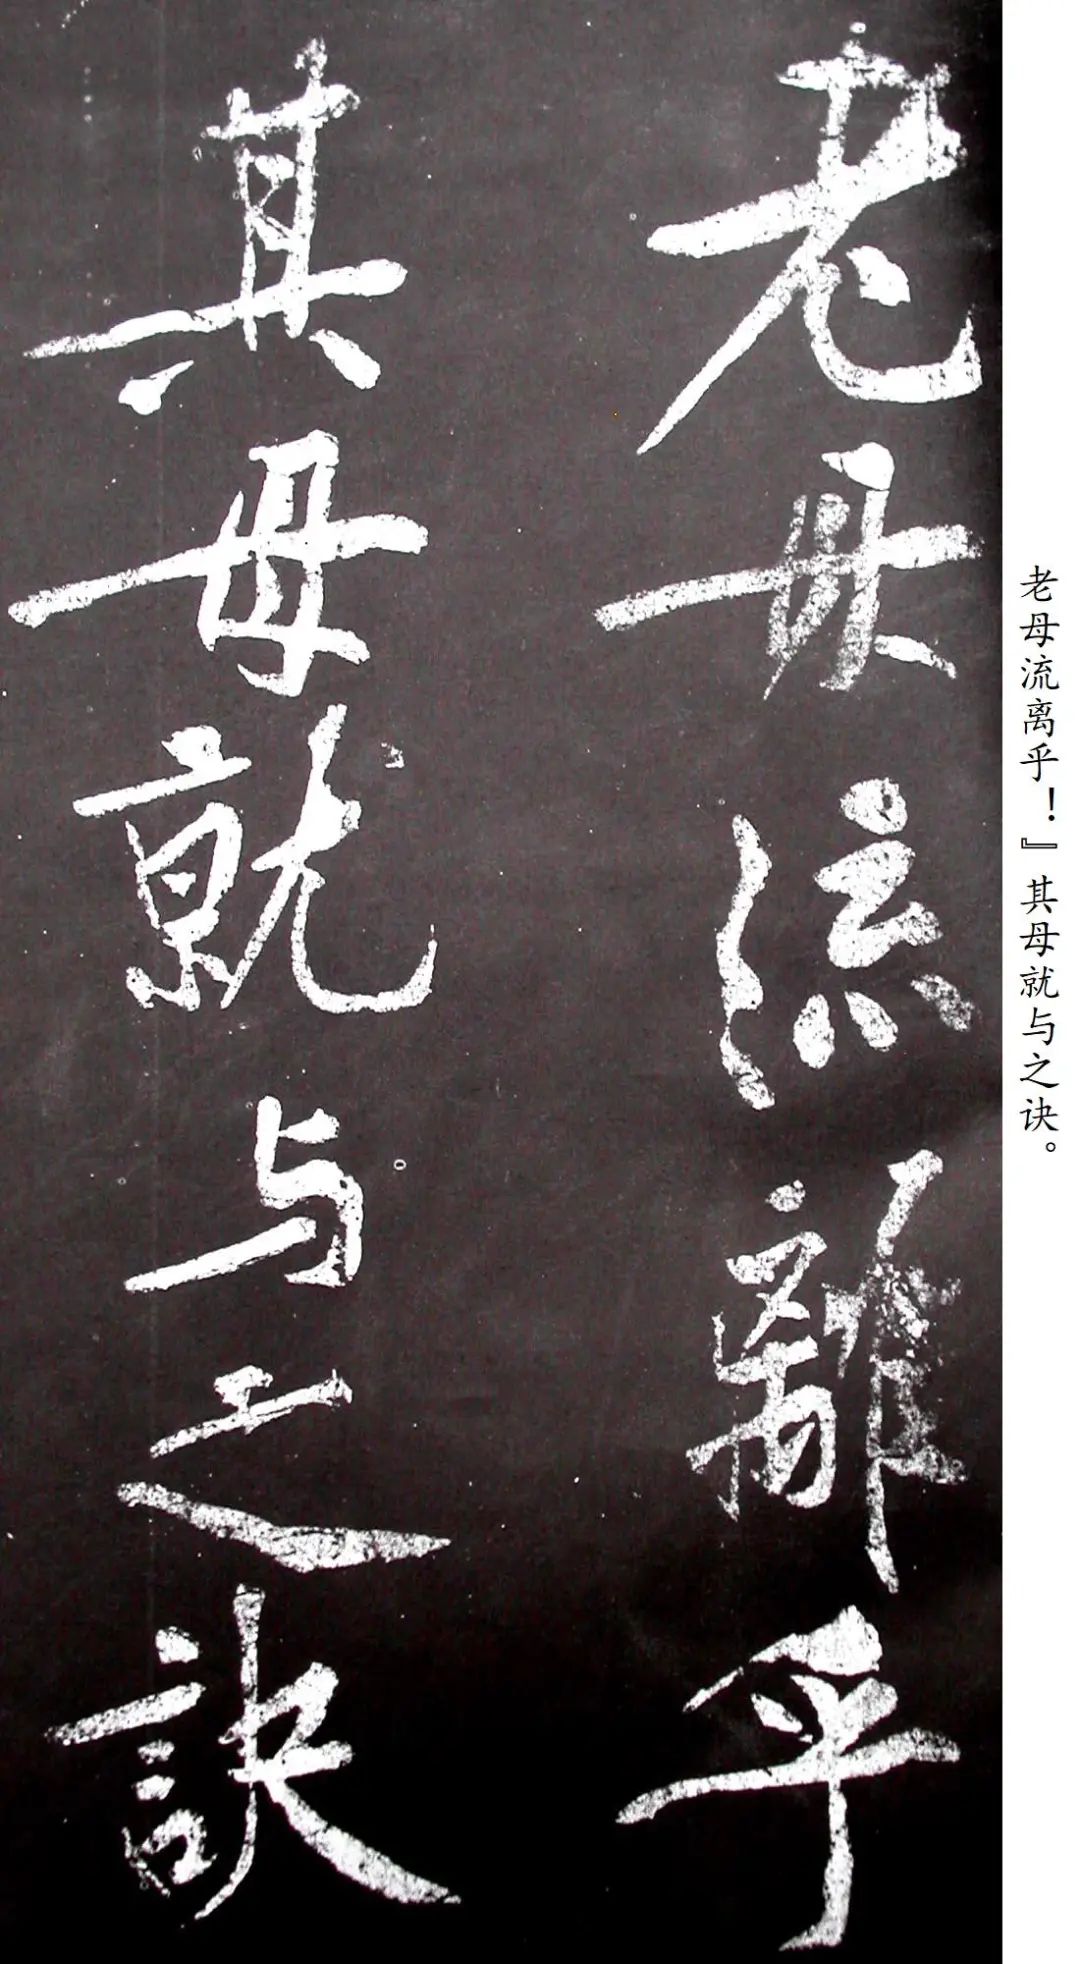 老母流離乎
其母就与之訣
老母流离乎！』其母就与之诀。